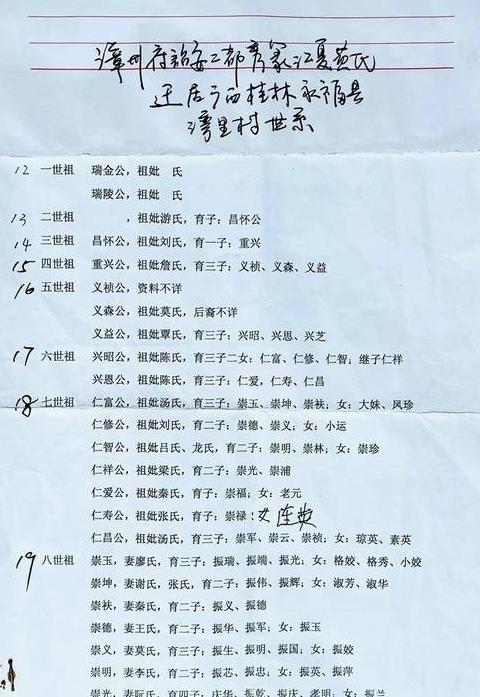 漳州府诏安二都秀篆江夏黄氏
迁居广西桂林永福县
湾里村世系
12 一世祖 瑞金公，祖妣 氏
瑞陵公，祖妣 氏
13 二世祖 ，祖妣游氏，育子：昌怀公
14 三世祖 昌怀公，祖妣刘氏，育一子：重兴
15 四世祖 重兴公，祖妣詹氏，育三子：义祯、义森、义益
16 五世祖 义祯公，资料不详
义森公，祖妣莫氏，后裔不详
义益公，祖妣覃氏，育三子：兴昭、兴思、兴芝
17 六世祖 兴昭公，祖妣陈氏，育三子二女：仁富、仁修、仁智；继子仁祥
兴恩公，祖妣陈氏，育三子：仁爱，仁寿、仁昌
18 七世祖 仁富公，祖妣汤氏，育三子：崇玉、崇坤、崇袄；女：大妹、凤珍
仁修公，祖妣刘氏，育二子：崇德、崇义；女：小运
仁智公，祖妣吕氏、龙氏，育二子：崇明、崇林；女：崇珍
仁祥公，祖妣梁氏，育二子：崇光、崇浦
仁爱公，祖妣秦氏，育子：崇福；女：老元
仁寿公，祖妣张氏，育子：崇禄；女 连英
仁昌公，祖妣汤氏，育三子：崇军、崇云、崇祯；女：琼英、素英
19 八世祖 崇玉，妻廖氏，育三子：振瑞、振端、振光；女：格姣、格秀、小姣
崇坤，妻谢氏，张氏，育二子：振伟、振辉；女：淑芳、淑华
崇袄，妻秦氏，育二子：振义、振德
崇德，妻王氏，育二子：振华、振军；女：振玉
崇义，妻莫氏，育三子：振生、振明、振国；女：振姣
崇明，妻李氏，育二子：振芯、振忠；女：振英、振萍
崇光，妻阮氏，育四子：庆华、振乾、振庆、孝明；女：振兰